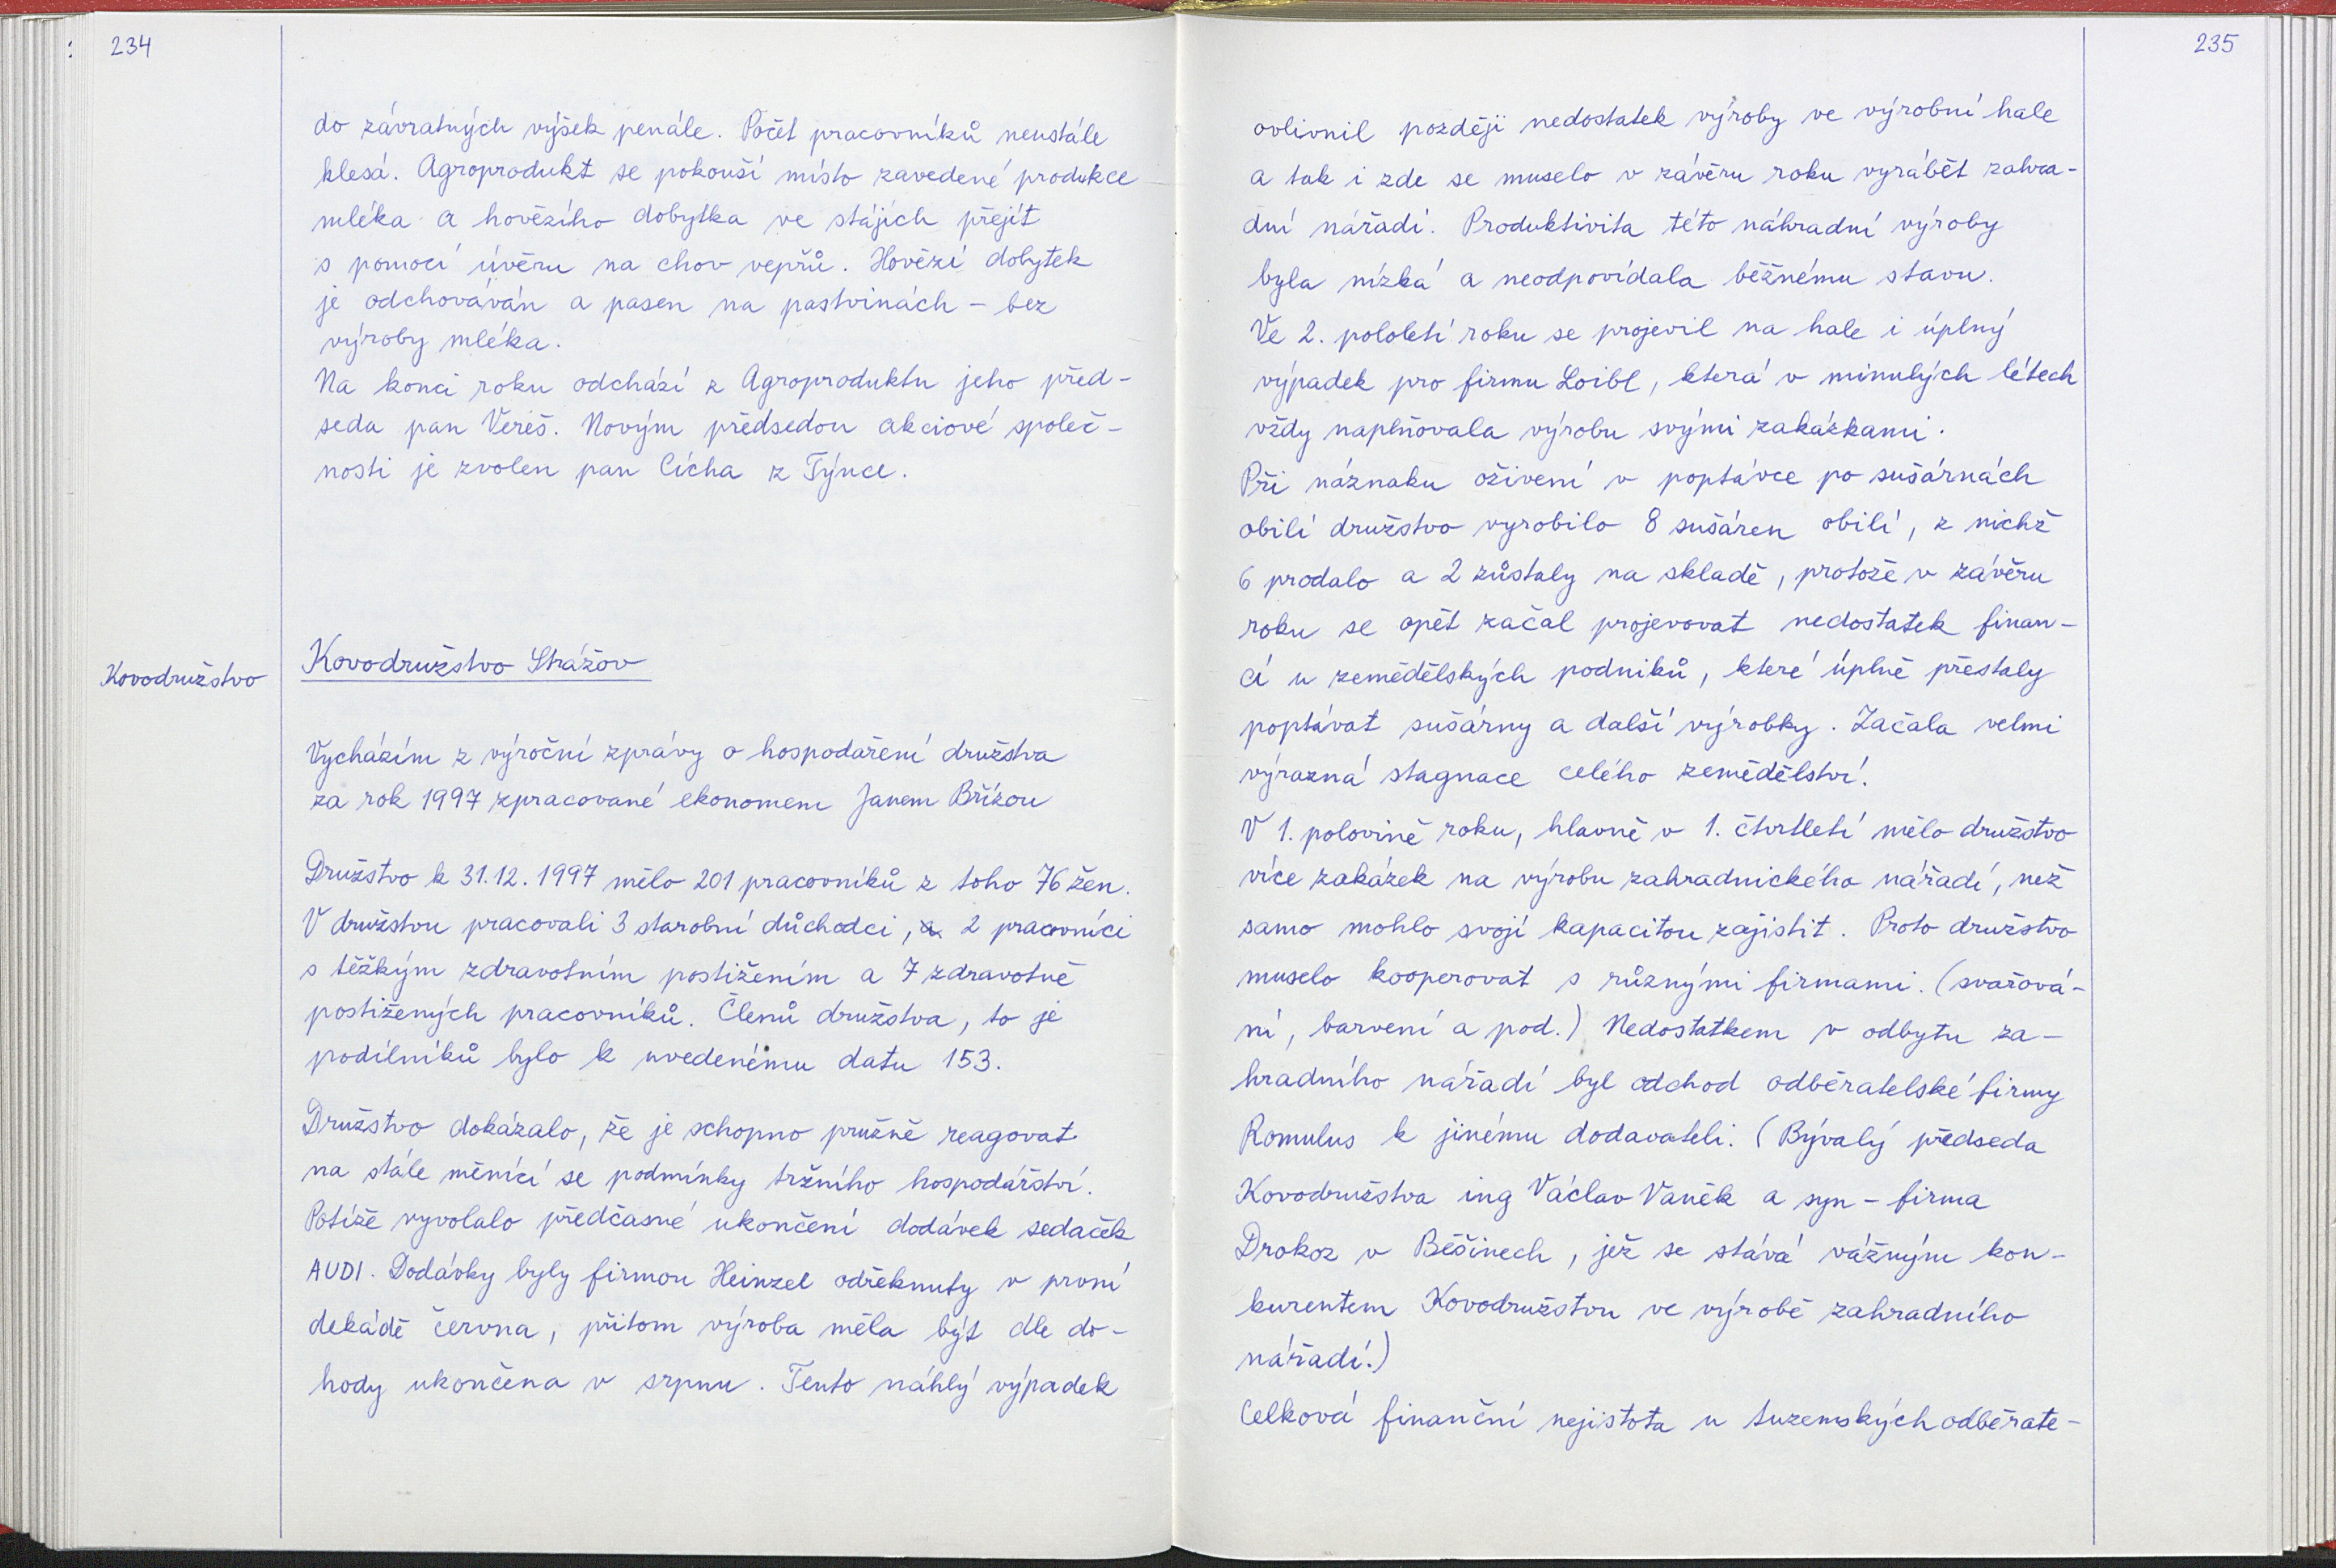 234
do závratných výšek penále. Počet pracovníků neustále
klesá. Agroprodukt se pokouší místo zavedené produkce
mléka a hovězího dobytka ve stájích přejít
s pomocí úvěru na chov vepřů. Hovězí dobytek
je odchováván a pasen na pastvinách – bez
výroby mléka.
Na konci roku odchází z Agroproduktu jeho před-
seda pan Vereš. Novým předsedou akciové společ-
nosti je zvolen pan Cícha z Týnce.
Kovodružstvo
Kovodružstvo Strážov
Vycházím z výroční zprávy o hospodaření družstva
za rok 1997 zpracované ekonomem Janem Břízou
Družstvo k 31.12.1997 mělo 201 pracovníků z toho 76 žen.
V družstvu pracovali 3 starobní důchodci, 2 pracovníci
s těžkým zdravotním postižením a 7 zdravotně
postižených pracovníků. Členů družstva, to je
podílníků bylo k uvedenému datu 153.
Družstvo dokázalo, že je schopno pružně reagovat
na stále měnící se podmínky tržního hospodářství.
Potíže vyvolalo předčasné ukončení dodávek sedaček
AUDI. Dodávky byly firmou Heinzel odřeknuty v první
dekádě června, přitom výroba měla být dle do-
hody ukončena v srpnu. Tento náhlý výpadek
235
ovlivnil později nedostatek výroby ve výrobní hale
a tak i zde se muselo v závěru roku vyrábět zahra-
dní nářadí. Produktivita této náhradní výroby
byla nízká a neodpovídala běžnému stavu.
Ve 2. pololetí roku se projevil na hale i úplný
výpadek pro firmu Loibl, která v minulých létech
vždy naplňovala výrobu svými zakázkami.
Při náznaku oživení v poptávce po sušárnách
obilí družstvo vyrobilo 8 sušáren obilí, z nichž
6 prodalo a 2 zůstaly na skladě, protože v závěru
roku se opět začal projevovat nedostatek finan-
cí u zemědělských podniků, které úplně přestaly
poptávat sušárny a další výrobky. Začala velmi
výrazná stagnace celého zemědělství.
V 1. polovině roku, hlavně v 1. čtvrtletí mělo družstvo
více zakázek na výrobu zahradnického nářadí, než
samo mohlo svojí kapacitou zajistit. Proto družstvo
muselo kooperovat s různými firmami. (svařová-
ní, barvení a pod.) Nedostatkem v odbytu za-
hradního nářadí byl odchod odběratelské firmy
Romulus k jinému dodavateli. (Bývalý předseda
Kovodružstva ing Václav Vaněk a syn – firma
Drokoz v Běšinech, jež se stává vážným kon-
kurentem Kovodružstvu ve výrobě zahradního
nářadí.)
Celková finanční nejistota u tuzemských odběrate-